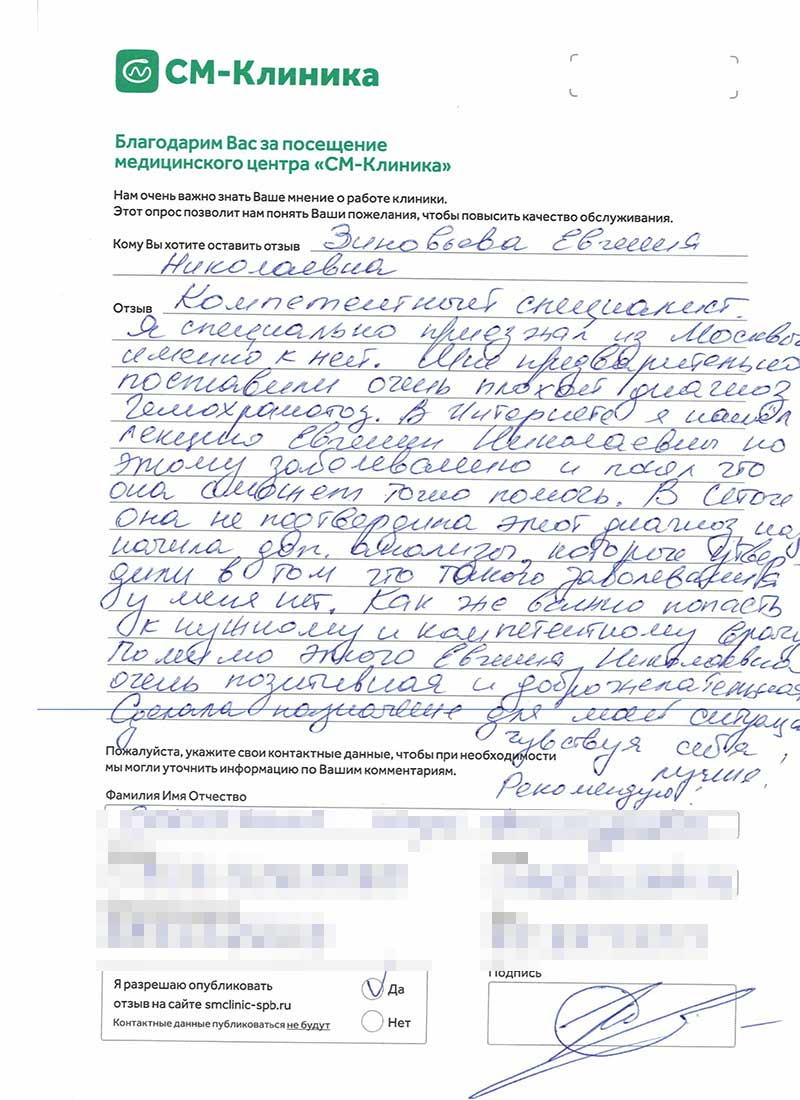 СМ-Клиника
Благодарим Вас за посещение
медицинского центра «СМ-Клиника»
Нам очень важно знать Ваше мнение о работе клиники.
Этот опрос позволит нам понять Ваши пожелания, чтобы повысить качество обслуживания.
Кому Вы хотите оставить отзыв Зиновьева Евгения
Николаевна
Отзыв Компетентный специалист.
Я специально приезжал из Москвы
именно к ней. Мне предварительно
поставили очень плохой диагноз
Гемохраматоз. В Интернете я нашел
лекцию Евгении Николаевны по
этому заболеванию и понял что
она сможет точно помочь. В Итоге
она не подтвердила этот диагноз наз
начила доп. анализы, которые утвер
дили в том что такого заболевания
у меня нет. Как же важно попасть
к нужному и компетентному врачу
Помимо этого Евгения Николаевна
очень позитивная и доброжелательная
Сделала назначение для моей ситуации
чувствуя себя
лучше.
Рекомендую!
Пожалуйста, укажите свои контактные данные, чтобы при необходимости
мы могли уточнить информацию по Вашим комментариям.
Фамилия Имя Отчество
Я разрешаю опубликовать
отзыв на сайте smclinic-spb.ru
Контактные данные публиковаться не будут
Да
Нет
Подпись